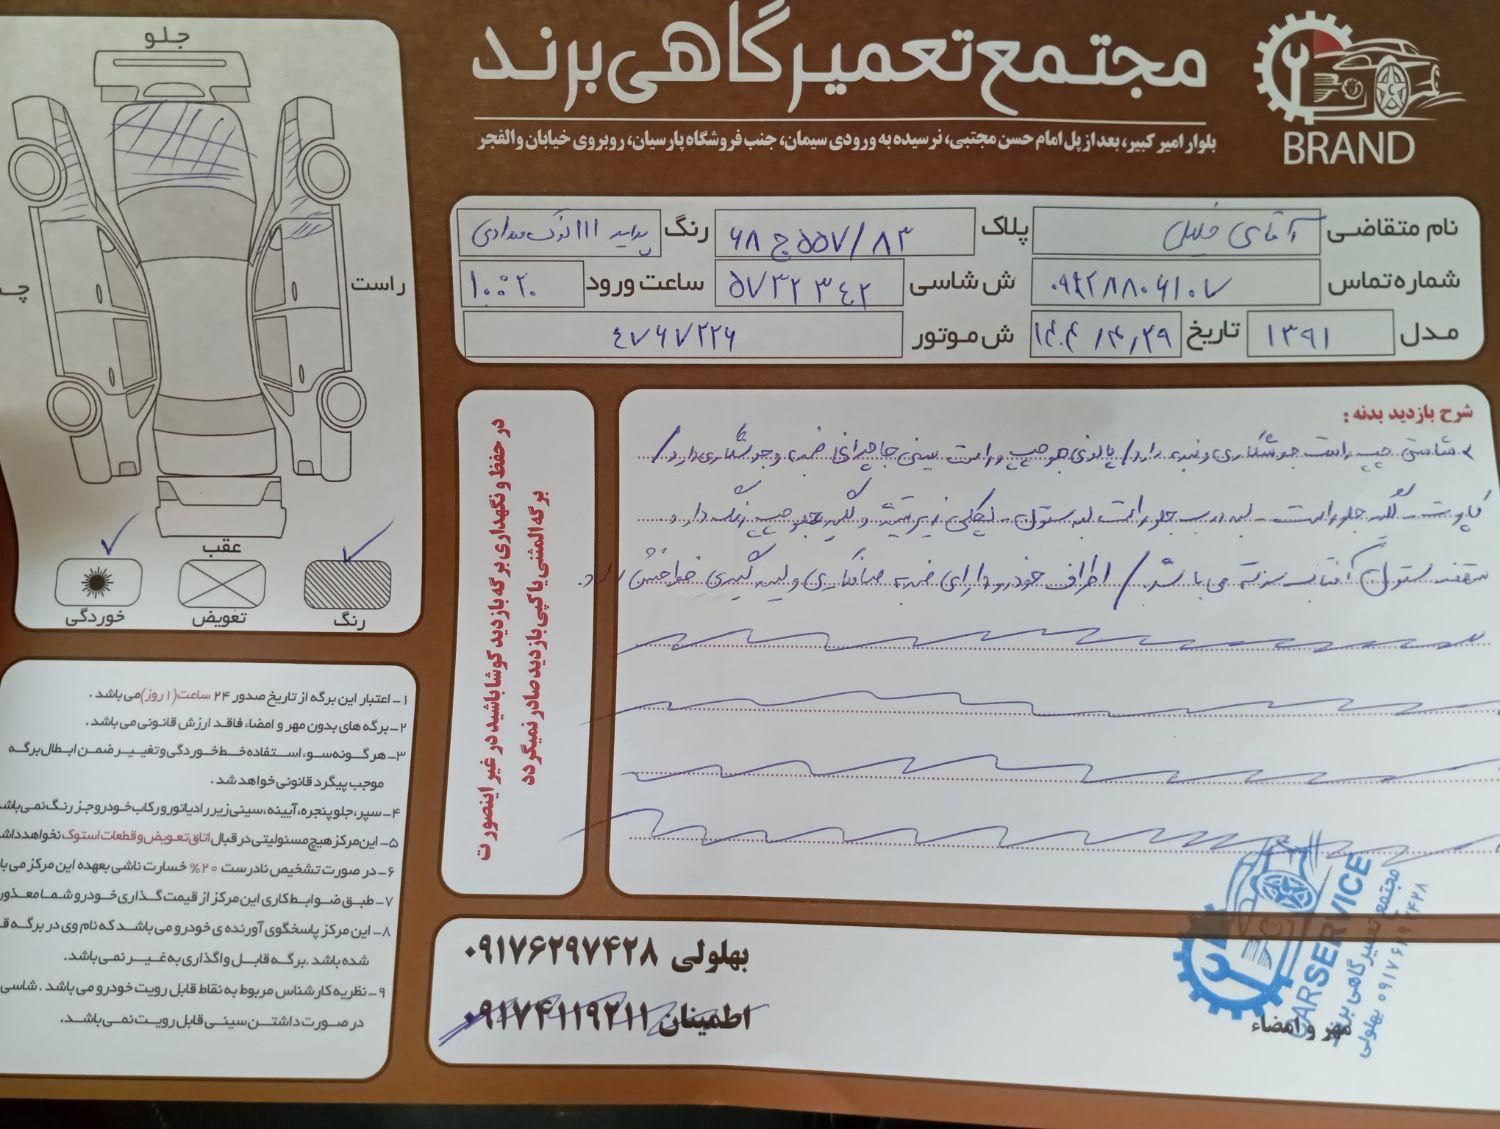 مجتمع تعمیرگاهی برند
BRAND
بلوار امیر کبیر، بعد از پل امام حسن مجتبی، نرسیده به ورودی سیمان، جنب فروشگاه پارسیان، روبروی خیابان والفجر
نام متقاضی آقای پلاک ۶۸ ج ۵۵۷/۸۳ رنگ پراید ۱۱۱ نوک مدادی
شماره تماس ش شاسی ۵۷۳۲۳۴۲ ساعت ورود ۱۰:۲۰
مدل ۱۳۹۱ تاریخ ۱۴۰۴/۴/۲۹ ش موتور ۴۷۶۷۲۲۶
شرح بازدید بدنه :
شاسی چپ راست جوشکاری و ضربه دارد/ پالونی جلو چپ و راست سینی جا چراغی ضربه و جوشکاری دارد/
کاپوت - گلگیر جلو راست - لبه درب جلو راست لبه ستون - و گلگیر جلو چپ رنگ دارد.
سقف ستون آفتاب سوخته می باشد/ اطراف خودرو دارای ضربه صافکاری و لیسه گیری خط و خش دارد.
در حفظ و نگهداری برگه بازدید کوشا باشید در غیر اینصورت
برگه المثنی یا کپی بازدید صادر نمیگردد
جلو
راست
چپ
عقب
رنگ
تعویض
خوردگی
۱- اعتبار این برگه از تاریخ صدور ۲۴ ساعت (۱ روز) می باشد .
۲- برگه های بدون مهر و امضاء فاقد ارزش قانونی می باشد .
۳- هر گونه سوء استفاده خط خوردگی و تغییر ضمن ابطال برگه
موجب پیگرد قانونی خواهد شد .
۴- سپر، جلو پنجره، آیینه، سینی زیر رادیاتور و رکاب خودرو جز رنگ نمی باشد
۵- این مرکز هیچ مسئولیتی در قبال اتاق تعویض و قطعات استوک نخواهد داشت
۶- در صورت تشخیص نادرست ۲۰% خسارت ناشی بعهده این مرکز می با
۷- طبق ضوابط کاری این مرکز از قیمت گذاری خودرو شما معذور
۸- این مرکز پاسخگوی آورنده ی خودرو می باشد که نام وی در برگه ق
شده باشد . برگه قابل واگذاری به غیر نمی باشد.
۹- نظریه کارشناس مربوط به نقاط قابل رویت خودرو می باشد . شاسی
در صورت داشتن سینی قابل رویت نمی باشد.
بهلولی ۰۹۱۷۶۲۹۷۴۲۸
اطمینان ۰۹۱۷۴۱۱۹۲۱۱
مهر و امضاء
CARSERVICE
مجتمع تعمیرگاهی برند
بهلولی ۰۹۱۷۶۲۹۷۴۲۸